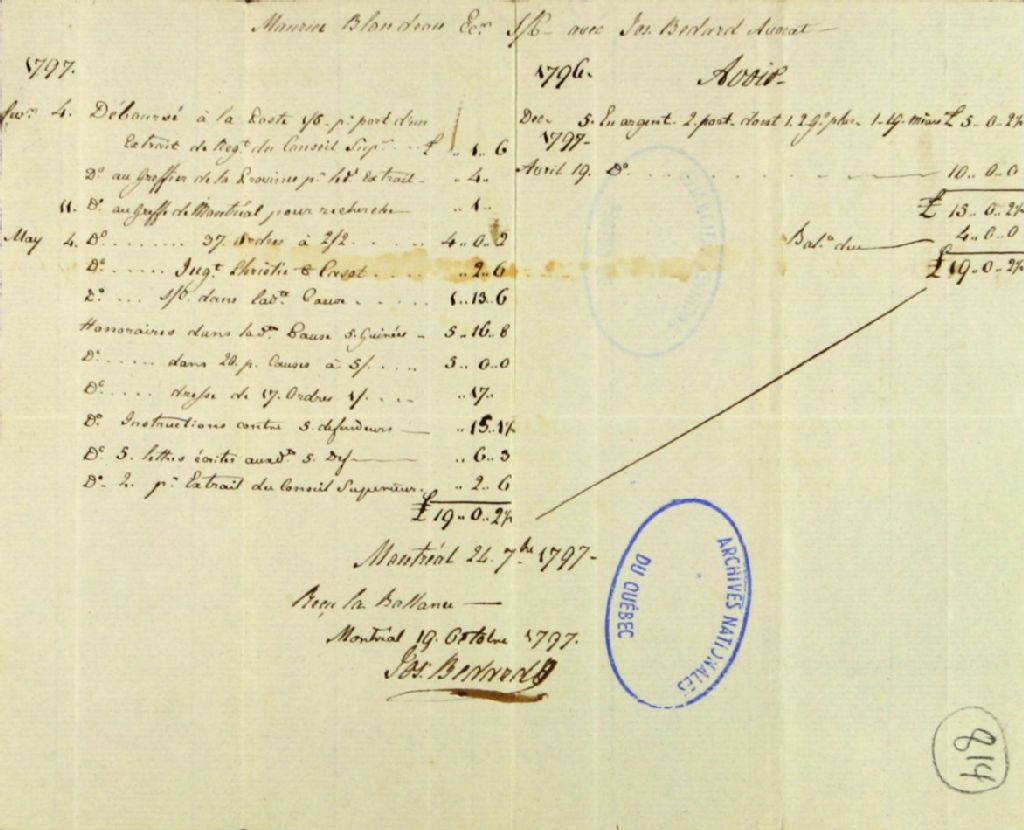 Maurice Blondeau Ecr. S/C avec Jos. Bedard Avocat
1797.
Janr. 4. Déboursé à la Poste 1/6. pr. port d'un
Extrait de Regt. du Conseil Supr. .. £ ,, 1 ,, 6
Do. au Greffier de la Province pr. led. Extrait ,, 4 ,,
11. Do. au Greffe de Montréal pour recherche ,, 1 ,,
May 4. Do. ....... 37 ordres à 2/2 ..... 4 ,, 0 ,, 2
Do. ..... Jugt. Christie & Casot .... ,, 2 ,, 6
Do. ... S/C. dans lade. Cause ..... 1 ,, 13 ,, 6
Honoraires dans lade. Cause 5. Guinées 5 ,, 16 ,, 8
Do. ..... dans 20. p. Causes à 5/. .... 5 ,, 0 ,, 0
Do. ..... dresse de 17. Ordres 1/. ... ,, 17 ,,
Do. Instructions contre 5. defendeurs ,, 15 ,, 1½
Do. 5. lettres écrites auxdts. 5. Def ,, 6 ,, 3
Do. 2. pr. Extrait du Conseil Superieur. ,, 2 ,, 6
£ 19 ,, 0 ,, 2½
1796. Avoir
Dec. 5. En argent. 2. port. dont 1. 2. gs. plus 1. 19. mins £ 5 ,, 0 ,, 2½
1797.
Avril 19. Do. 10 ,, 0 ,, 0
£ 15 ,, 0 ,, 2½
Bale. due 4 ,, 0 ,, 0
£ 19 ,, 0 ,, 2½
Montréal 24. 7bre 1797.
Reçu la Ballance
Montréal 19. Octobre 1797.
Jos. Bedard
ARCHIVES NATIONALES
DU QUÉBEC
814